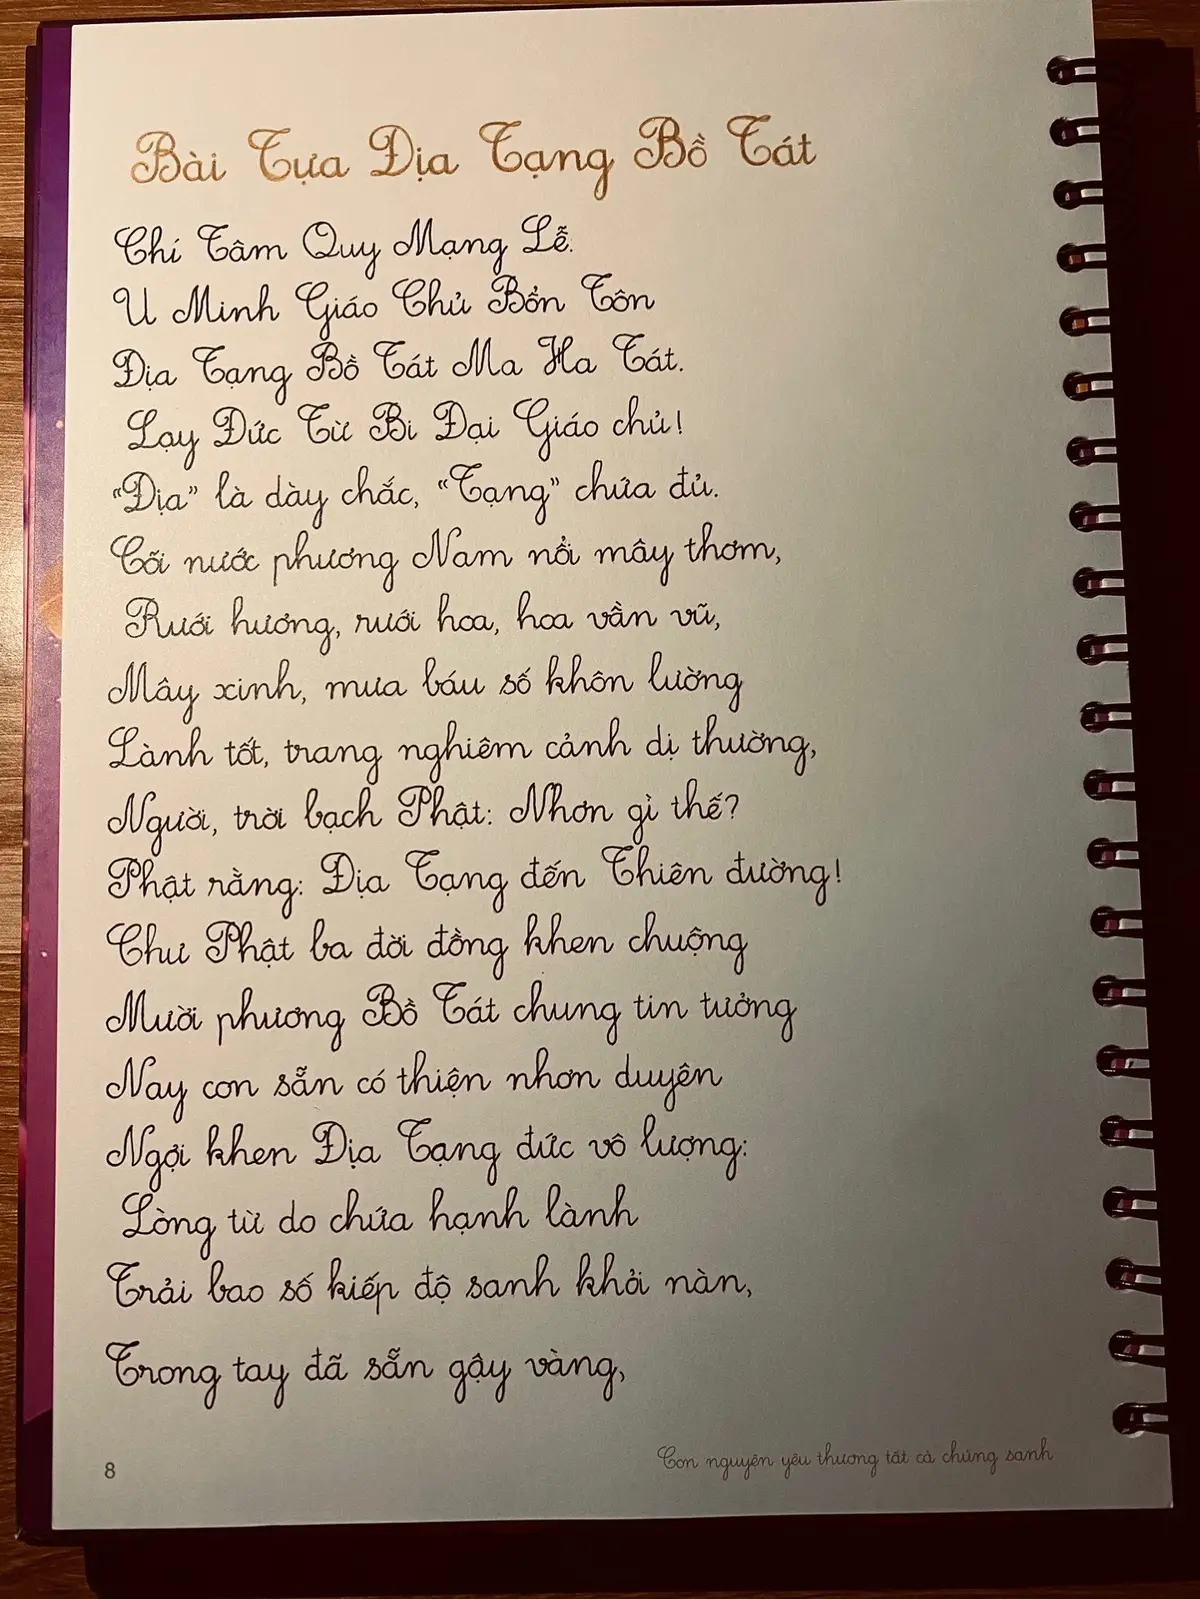 Bài Tựa Địa Tạng Bồ Tát
Chí Tâm Quy Mạng Lễ.
U Minh Giáo Chủ Bổn Tôn
Địa Tạng Bồ Tát Ma Ha Tát.
Lạy Đức Từ Bi Đại Giáo chủ!
“Địa” là dày chắc, “Tạng” chứa đủ.
Cõi nước phương Nam nổi mây thơm,
Rưới hương, rưới hoa, hoa vần vũ,
Mây xinh, mưa báu số khôn lường
Lành tốt, trang nghiêm cảnh dị thường,
Người, trời bạch Phật: Nhơn gì thế?
Phật rằng: Địa Tạng đến Thiên đường!
Chư Phật ba đời đồng khen chuộng
Mười phương Bồ Tát chung tin tưởng
Nay con sẵn có thiện nhơn duyên
Ngợi khen Địa Tạng đức vô lượng:
Lòng từ do chứa hạnh lành
Trải bao số kiếp độ sanh khỏi nàn,
Trong tay đã sẵn gậy vàng,
8
Con nguyện yêu thương tất cả chúng sanh